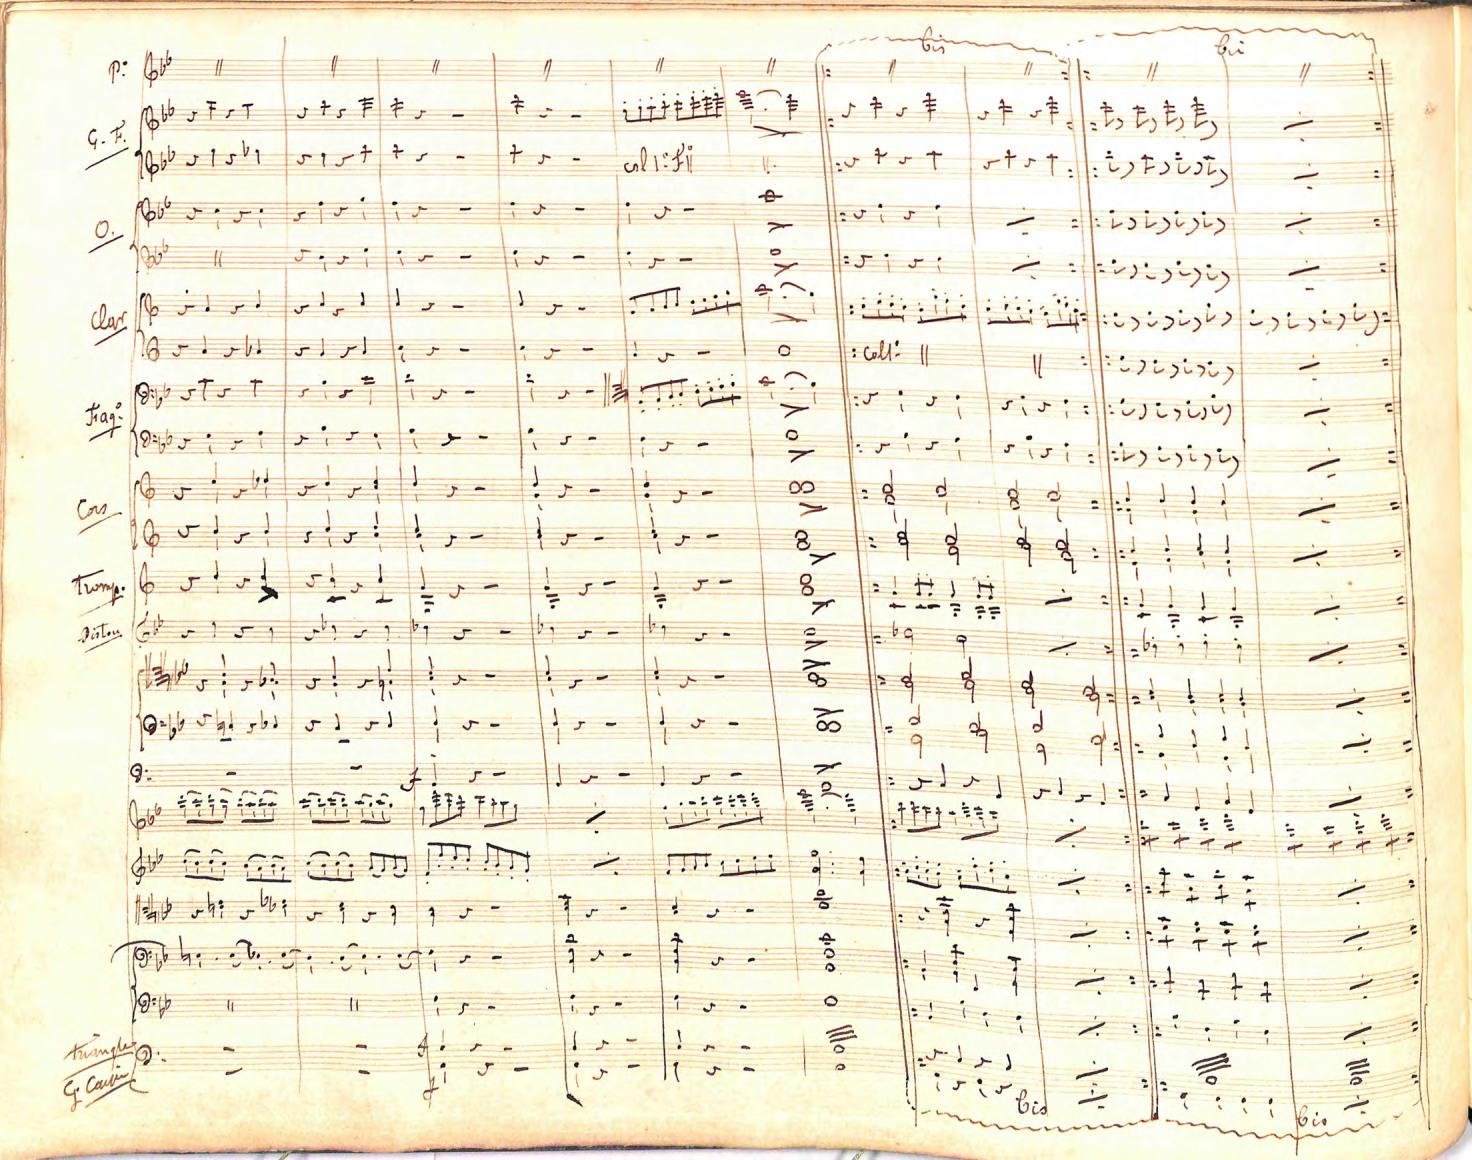 bis
P:
G. F.
col 1:
O.
Clar
col 1:
Fag:
Cors
Tromp.
Piston
f
Triangle
f
G. Caisse
bis
bis